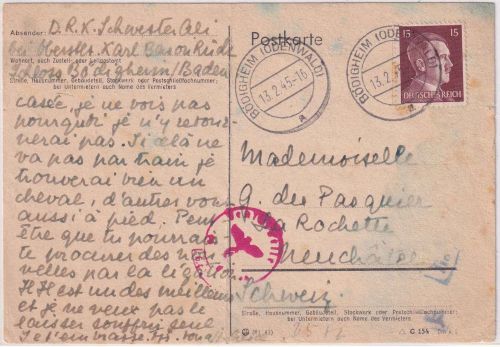 Absender: D.R.K. Schwester Ali
bei Oberstlt. Karl Baron Rüdt
Wohnort, auch Zustell- oder Leitpostamt
Schloss Bödigheim/Baden
Straße, Hausnummer, Gebäudeteil, Stockwerk oder Postschließfachnummer;
bei Untermietern auch Name des Vermieters
casée, je ne vois pas
pourquoi je n'y retour-
nerai pas. Si cela ne
va pas par train je
trouverai bien un
cheval, d'autres vont
aussi à pied. Peut
être que tu pourrais
te procurer des nou-
velles par la légation
H.H. est un des meilleurs
et je ne veux pas le
laisser souffrir seul
Je t'embrasse
Postkarte
BÖDIGHEIM (ODENWALD)
13.2.45-16
a
BÖDIGHEIM (ODENWALD)
13.2.45-16
a
15 15
DEUTSCHES REICH
Mademoiselle
G. du Pasquier
La Rochette
Neuchâtel
Schweiz
Straße, Hausnummer, Gebäudeteil, Stockwerk oder Postschließfachnummer;
bei Untermietern auch Name des Vermieters
C 154